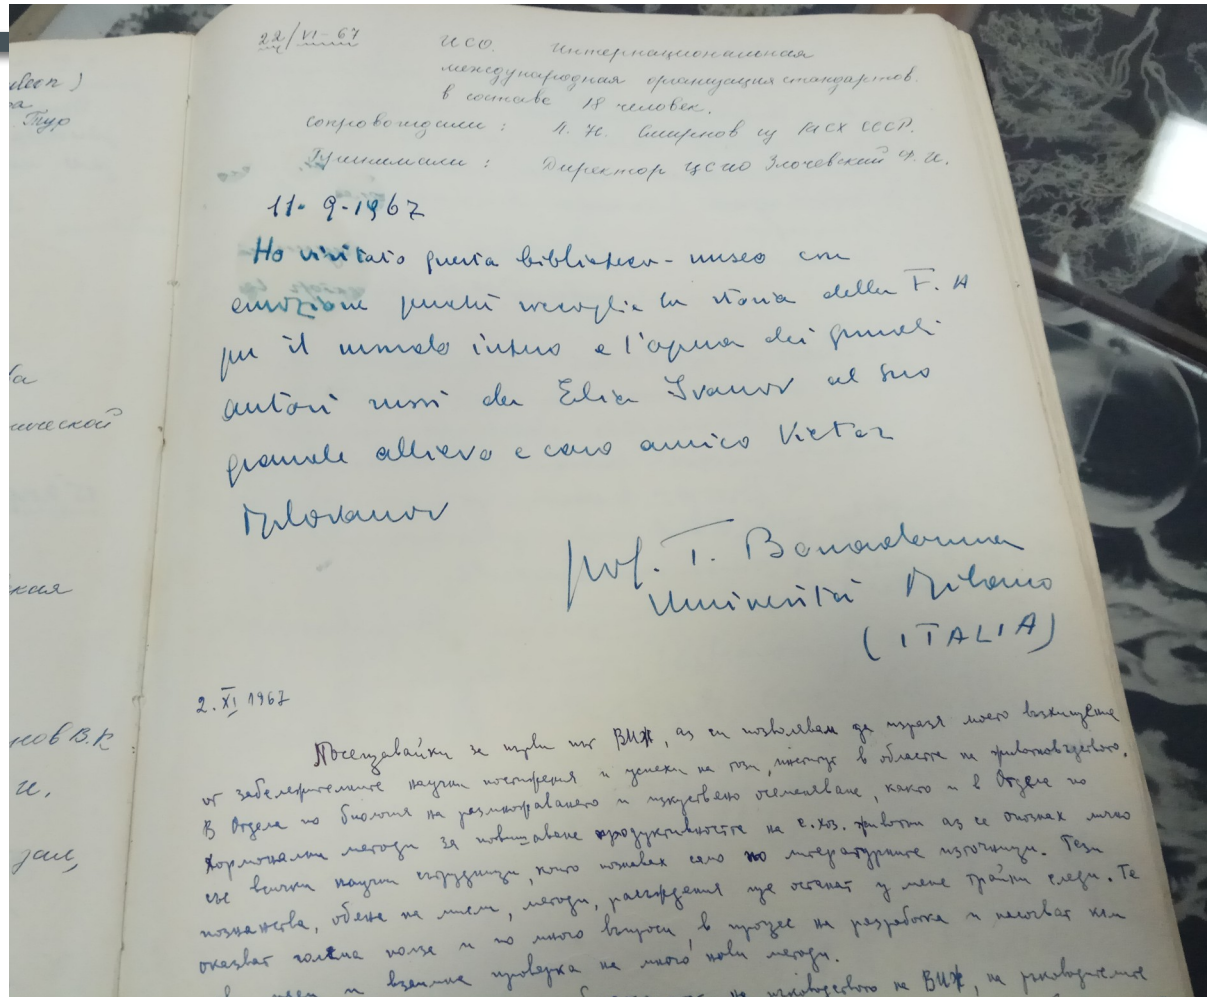 22/VI-67
ИСО. Интернациональная
международная организация стандартов.
в составе 18 человек.
Сопровождали: А. Н. Смирнов из ВАСХ СССР.
Принимали: Директор ЦСИО Злочевский Ф. И.
11-9-1967
Ho visitato questa biblioteca-museo con
emozione perché raccoglie la storia della F. A
per il mondo intero e l'opera dei grandi
autori russi da Elia Ivanov al suo
grande allievo e caro amico Victor
Milovanov
prof. T. Bonadonna
Università Milano
(ITALIA)
2. XI 1967
Посещавайки за първи път ВИЖ, аз си позволявам да изразя моето възхищение
от забележителните научни постижения и успехи на този институт в областта на животновъдството.
В Отдела по биология на размножаването и изкуствено осеменяване, както и в Отдела по
хормонални методи за повишаване продуктивността на с.хоз. животни аз се опознах лично
със всички научни сътрудници, които познавах само по литературните източници. Тези
познанства, обмена на мисли, методи, разсъждения ще останат у мене трайни следи. Те
оказват голяма полза и по много въпроси в процес на разработка и насочват към
взаимна проверка на много нови методи.
на ръководството на ВИЖ, на ръководителите
ической
кая
нов В.К
и.
зал,